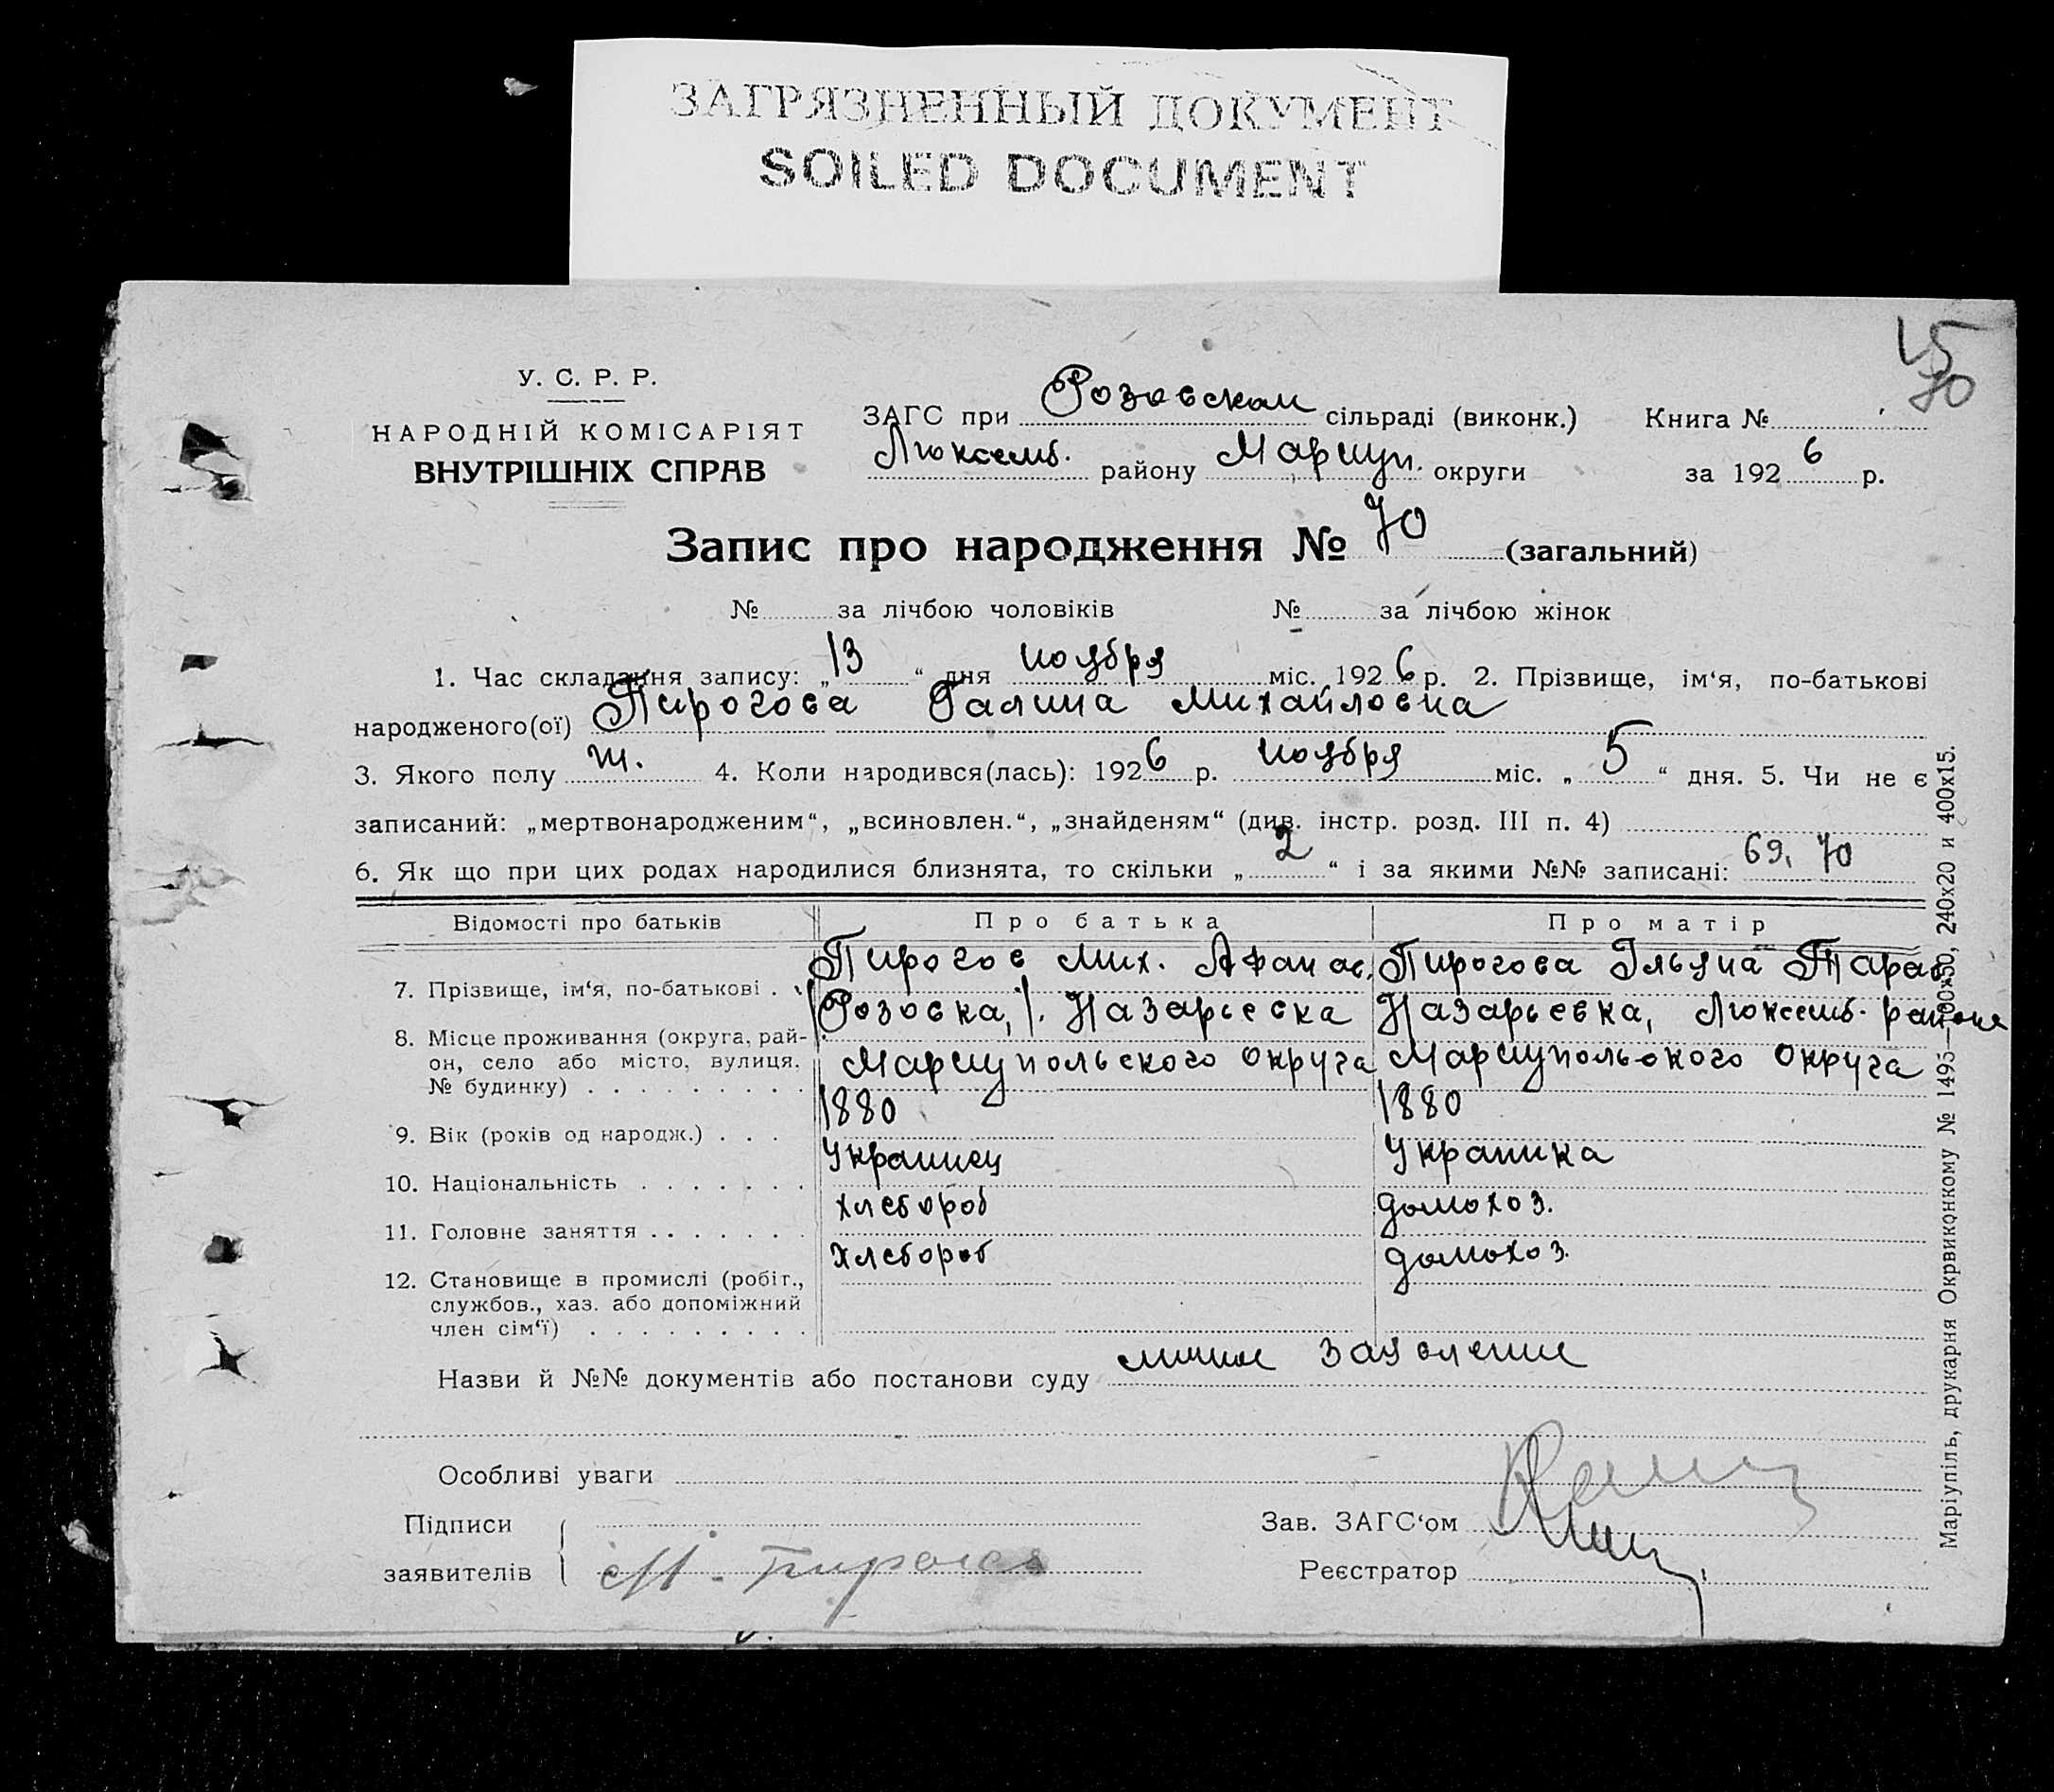 ЗАГРЯЗНЕННЫЙ ДОКУМЕНТ
SOILED DOCUMENT
70
У. С. Р. Р.
НАРОДНІЙ КОМІСАРІЯТ
ВНУТРІШНІХ СПРАВ
ЗАГС при Розовском сільраді (виконк.) Книга №
Люксемб. району Мариуп. округи за 1926 р.
Запис про народження № 70 (загальний)
№ за лічбою чоловіків № за лічбою жінок
1. Час складання запису: „13“ дня ноября міс. 1926 р. 2. Прізвище, ім‘я, по-батькові
народженого(ої) Пирогова Галина Михайловна
3. Якого полу ж. 4. Коли народився(лась): 1926 р. ноября міс. „5“ дня. 5. Чи не є
записаний: „мертвонародженим“, „всиновлен.“, „знайденям“ (див. інстр. розд. III п. 4)
6. Як що при цих родах народилися близнята, то скільки „2“ і за якими №№ записані: 69, 70
Відомості про батьків Про батька Про матір
7. Прізвище, ім‘я, по-батькові . Пирогов Мих. Афанас. Пирогова Ульяна Тарас
8. Місце проживання (округа, рай- Розовка, Назарьевка Назарьевка, Люксемб. района
он, село або місто, вулиця, Мариупольского округа Мариупольского округа
№ будинку) . . . . . . . .
9. Вік (років од народж.) . . . 1880 1880
10. Національність . . . . . . . Украинец Украинка
11. Головне заняття . . . . . . . хлебороб домохоз.
12. Становище в промислі (робіт., хлебороб домохоз.
службов., хаз. або допоміжний
член сім‘ї) . . . . . . . . .
Назви й №№ документів або постанови суду личное заявление
Особливі уваги
Підписи
заявителів М. Пирогов
Зав. ЗАГС‘ом
Реєстратор
Маріупіль, друкарня Окрвиконкому № 1495—100х50, 240х20 и 400х15.